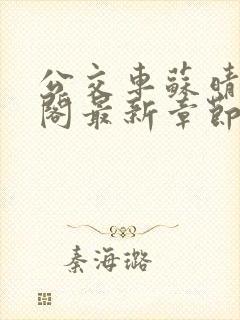 公交车蘇晴
閣最新章節
秦海璐